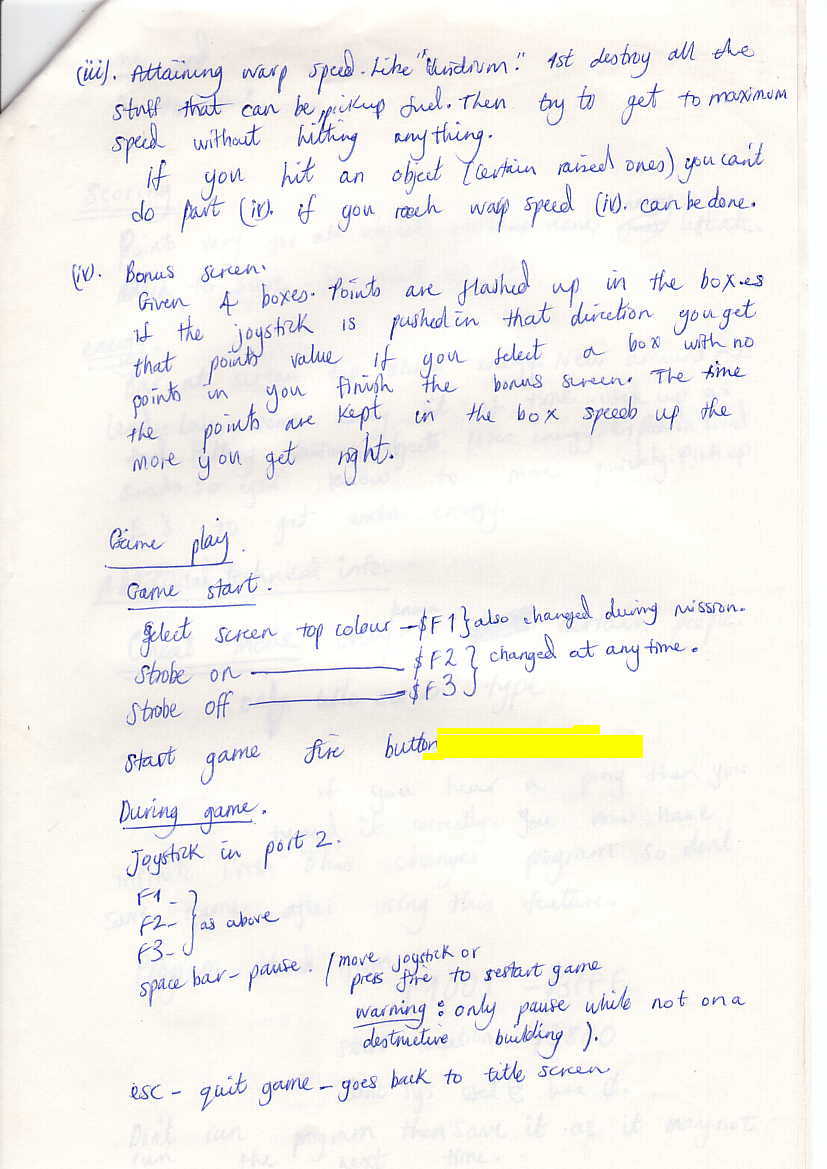 (iii). Attaining warp speed. Like "Uuridium." 1st destroy all the
stuff that can be, pickup fuel. Then try to get to maximum
speed without hitting anything.
if you hit an object (certain raised ones) you can't
do part (iv). if you reach warp speed (iv). can be done.
(iv). Bonus screen.
Given 4 boxes. Points are flashed up in the box.es
if the joystick is pushed in that direction you get
that points value if you select a box with no
points in you finish the bonus screen. The time
the points are kept in the box speeds up the
more you get right.
Game play.
Game start.
Select screen top colour - $F1 } also changed during mission.
Strobe on - $F2 } changed at any time.
Strobe off - $F3
Start game fire button
During game.
Joystick in port 2.
F1 -
F2 - } as above
F3 -
space bar - pause. (move joystick or
press fire to restart game
warning : only pause while not on a
destructive building ).
esc - quit game - goes back to title screen